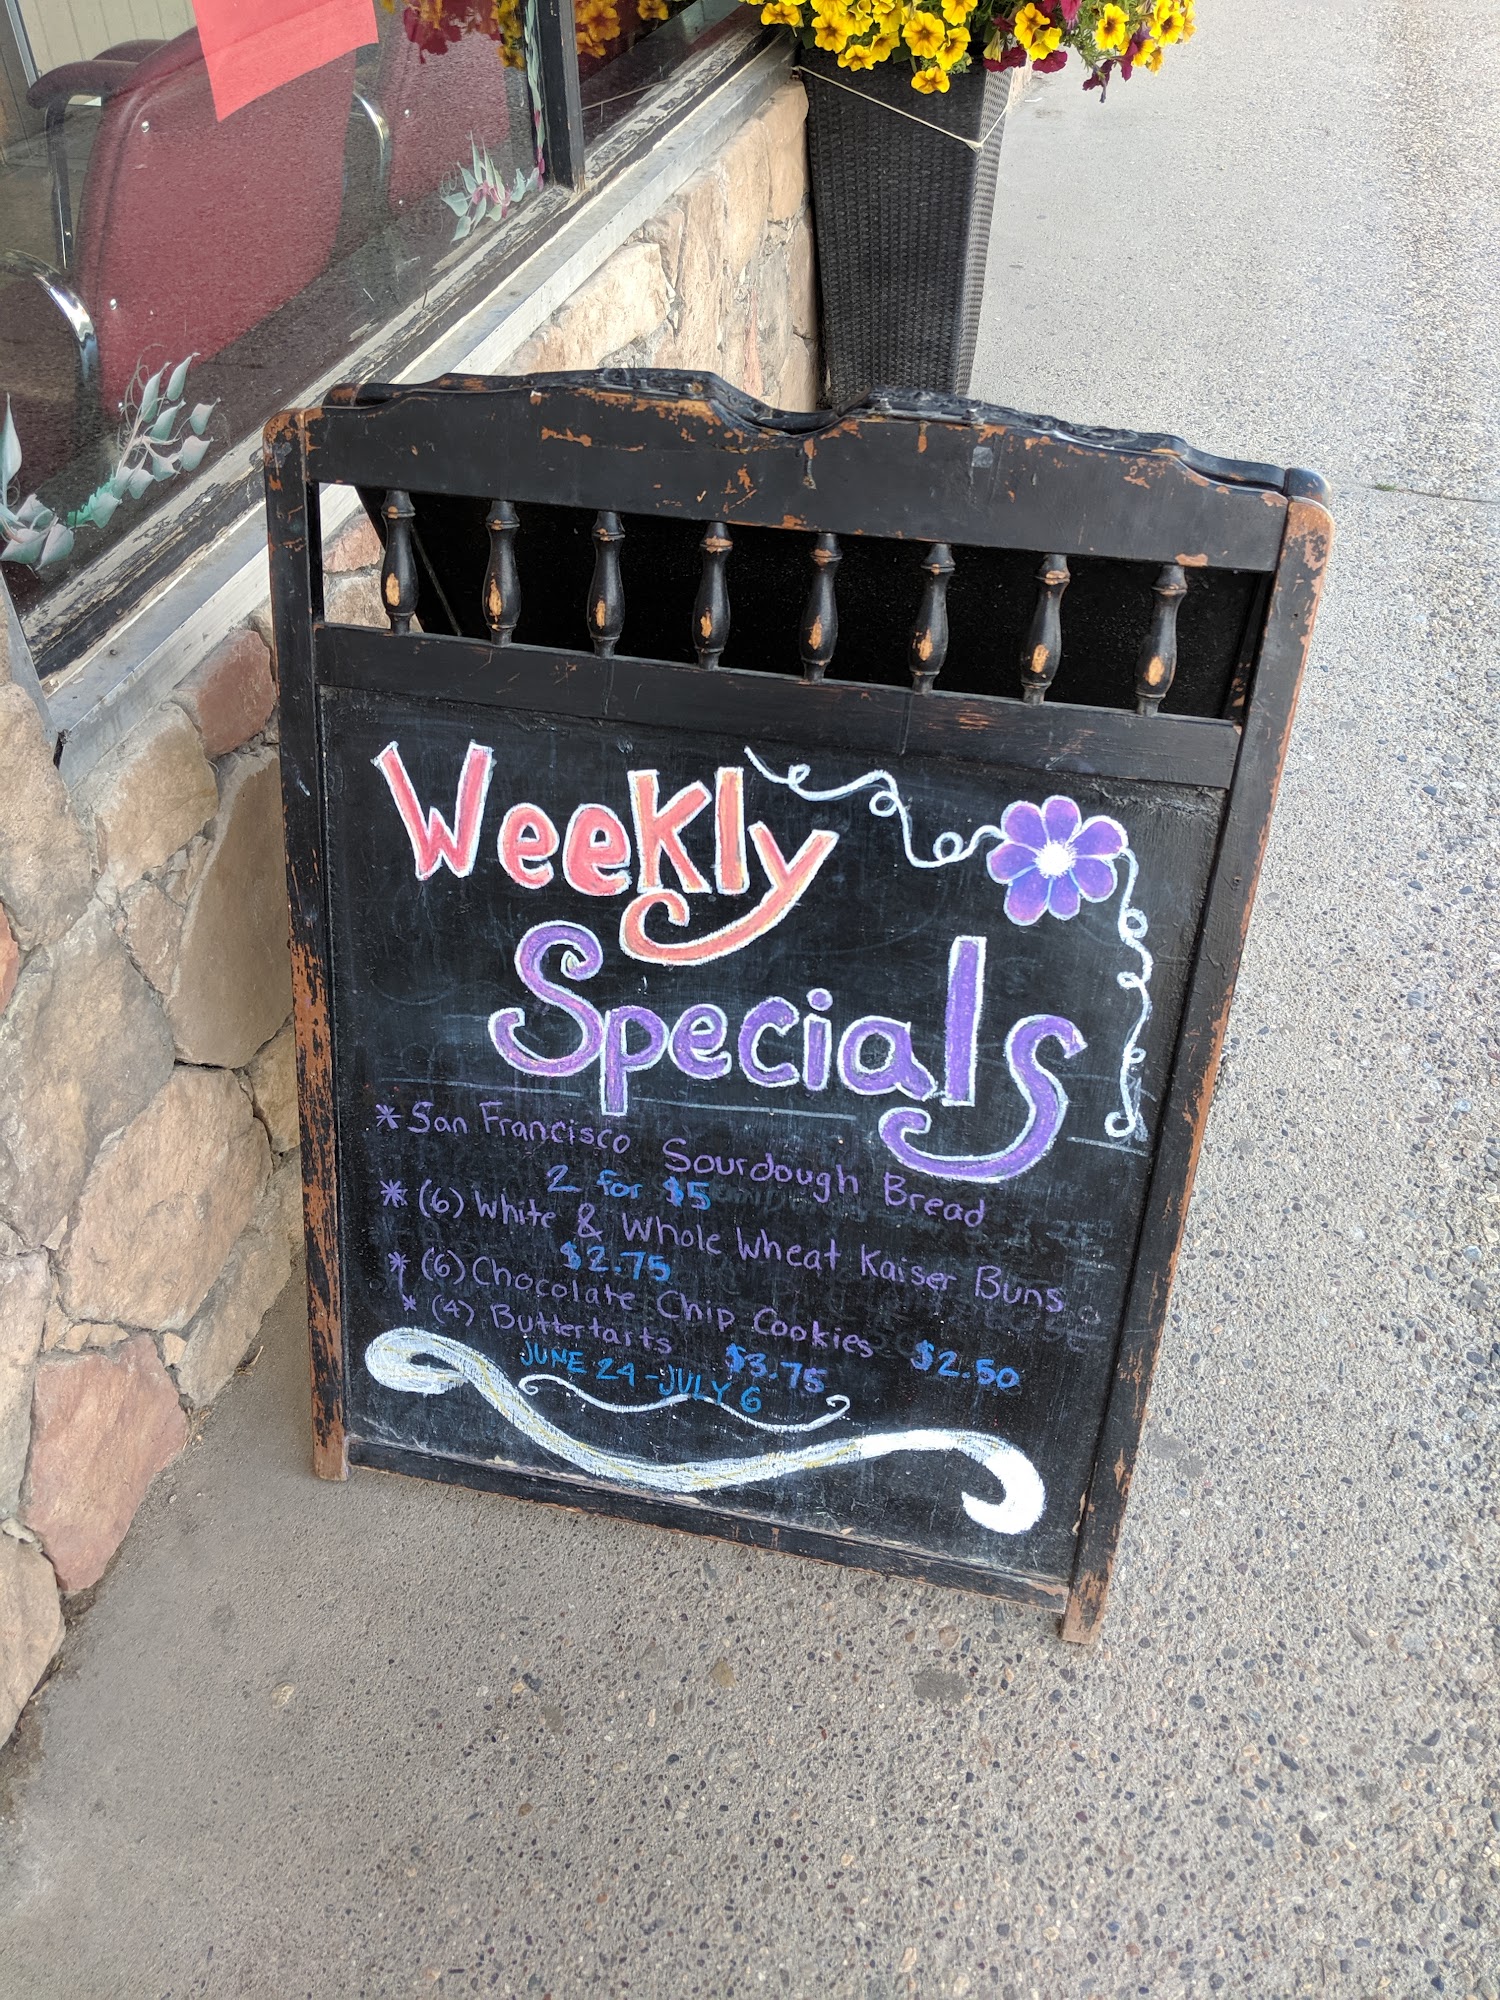 Weekly
Specials
* San Francisco Sourdough Bread
2 for $5
* (6) White & Whole Wheat Kaiser Buns
$2.75
* (6) Chocolate Chip Cookies $2.50
* (4) Buttertarts $3.75
JUNE 24 - JULY 6